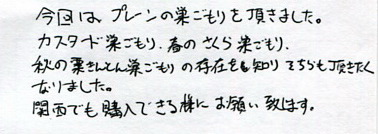 今回は、プレーンの巣ごもりを頂きました。
カスタード巣ごもり、春のさくら巣ごもり、
秋の栗きんとん巣ごもりの存在をも知りそちらも頂きたく
なりました。
関西でも購入できる様にお願い致します。